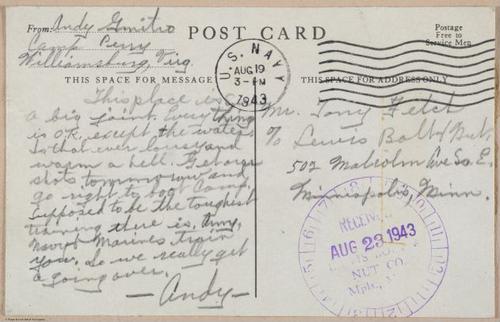 From: Andy Gmitro
Camp Peary
Williamsburg, Virg.
POST CARD
Postage
Free to
Service Men
U.S. NAVY
AUG 19
3-PM
1943
THIS SPACE FOR MESSAGE
THIS SPACE FOR ADDRESS ONLY
This place is
a big joint. Everything
is O.K. except the water
is that ever lousy and
warm a hell.
shots tommorrow and
go right to boot camp.
Supposed to be the toughest
training there is. Army,
Navy & Marines train
you. So we really get
a going over.
—Andy—
Mr. Tony Fetch
c/o Lewis Bolt & Nut.
502 Malcolm Ave So. E.
Minneapolis, Minn.
RECEIVED
AUG 23 1943
LEWIS BOLT &
NUT CO.
Mpls.